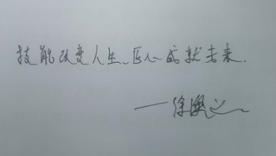 技能改变人生、匠心成就未来.
——徐澳义